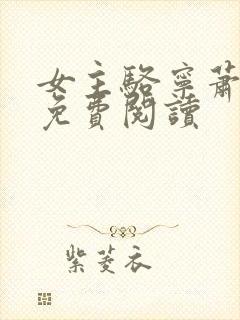 女主駱寧蕭
免費閱讀
紫菱衣